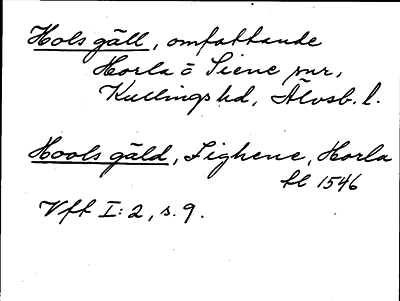 Hols gäll, omfattande
Horla o Siene snr,
Kullings hd, Älvsb. l.
Hools gäld, Sighene, Horla
tl 1546
Vft I:2, s. 9.